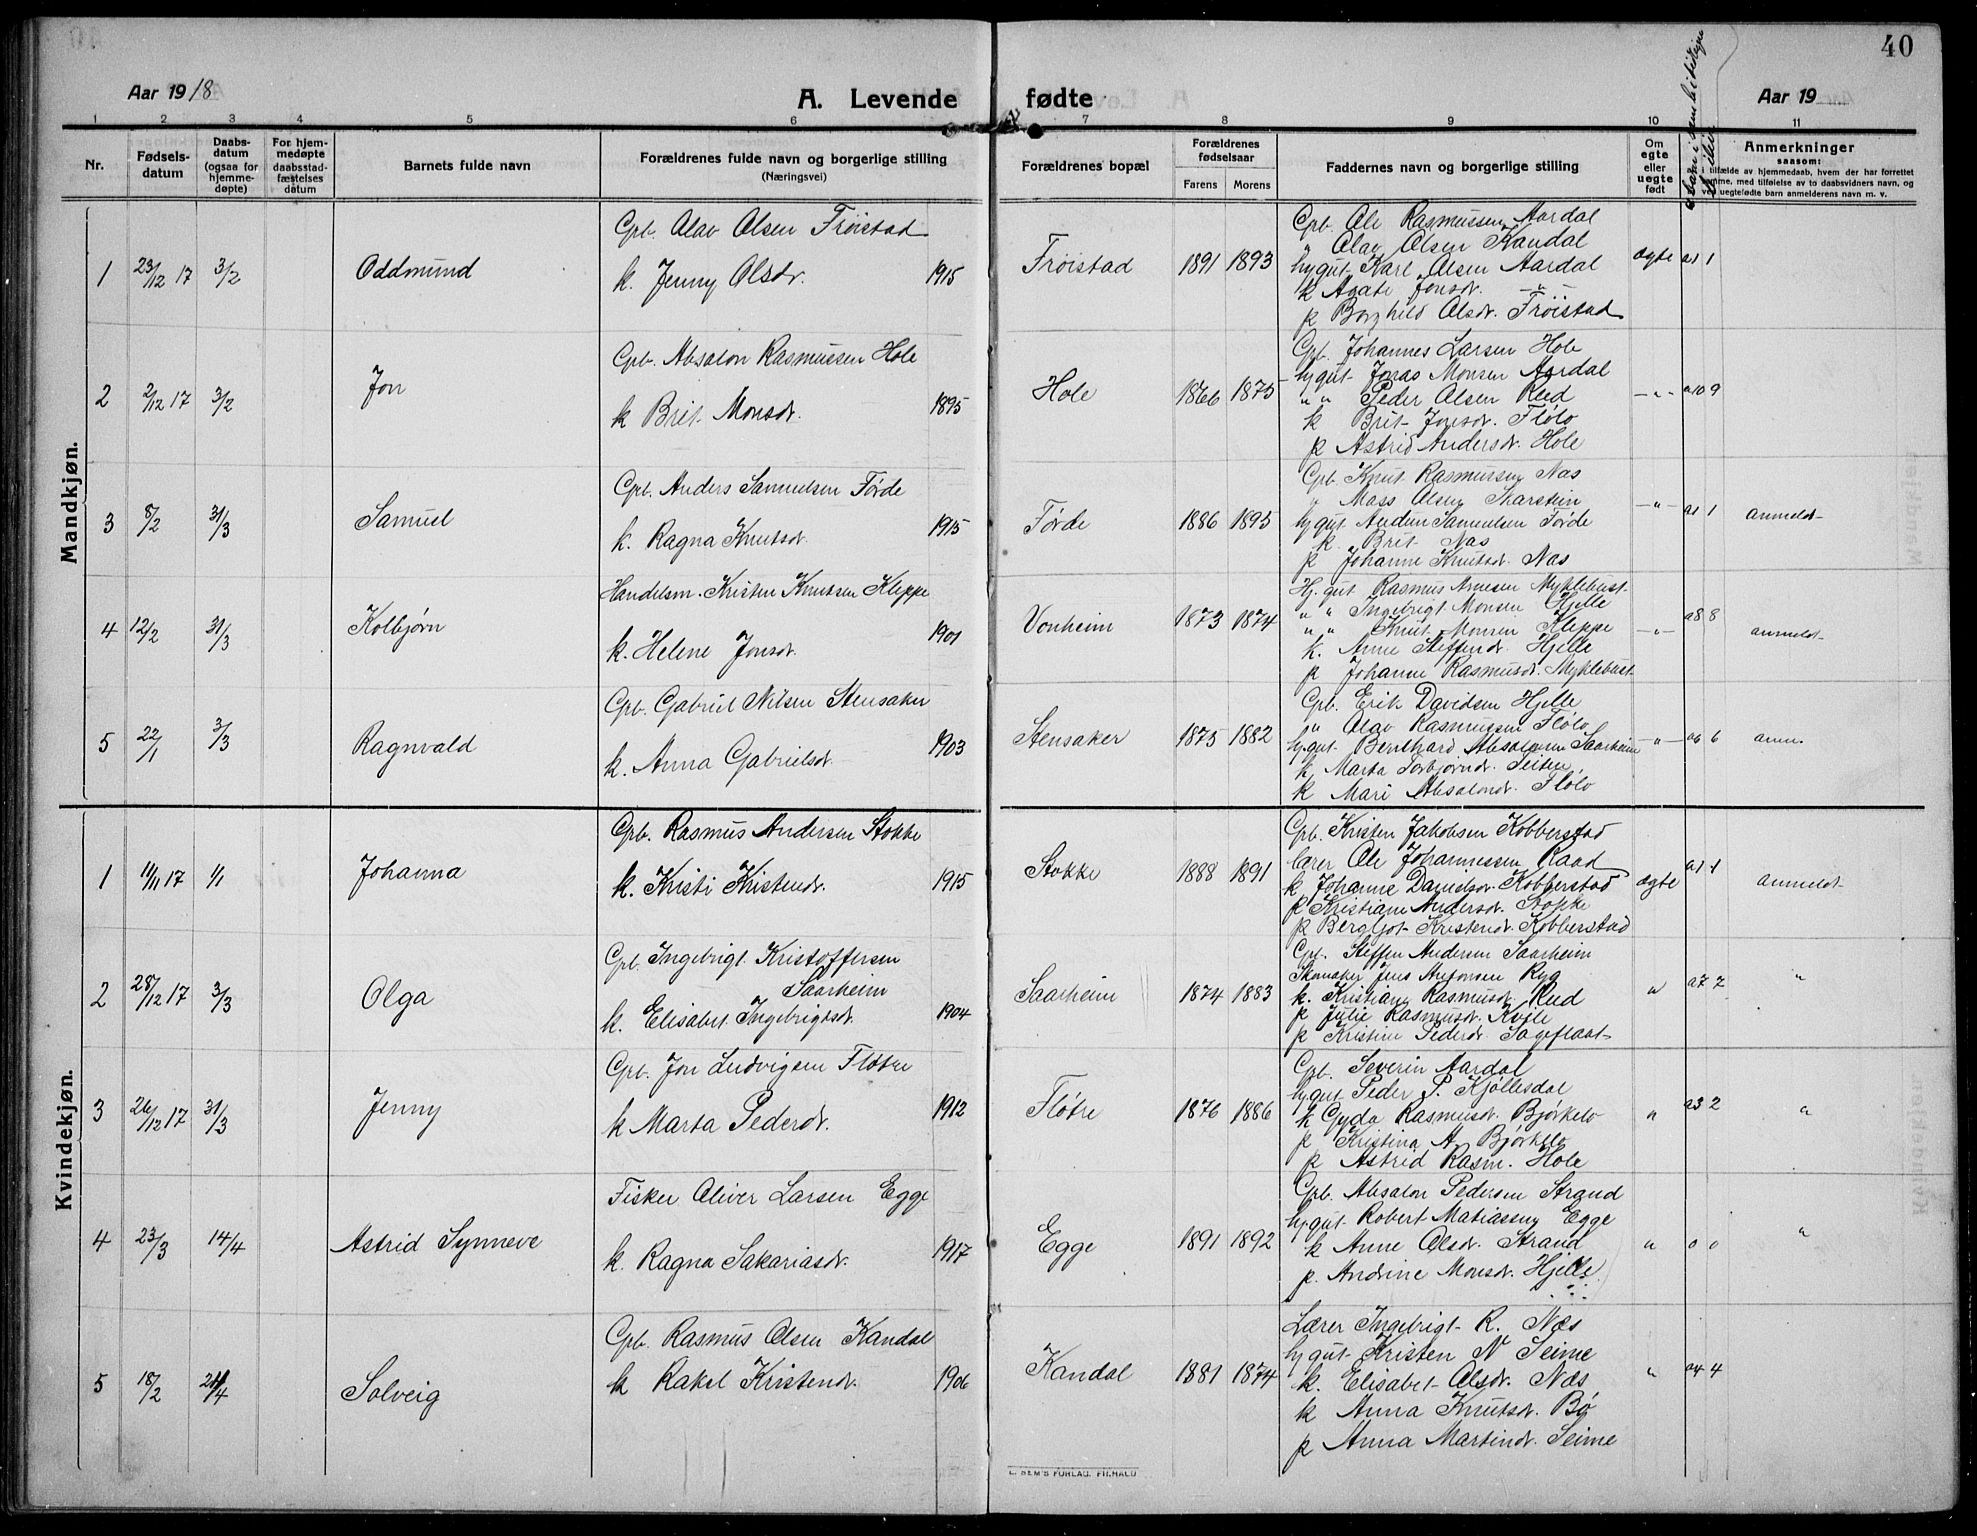 40
Aar 1918
A. Levende fødte.
Aar 19
1 2 3 4 5 6 7 8 9 10 11
Nr.
Fødselsdatum
Daabsdatum (ogsaa for hjemmedøpte)
For hjemmedøpte daabsstadfæstelses datum
Barnets fulde navn
Forældrenes fulde navn og borgerlige stilling
(Næringsvei)
Forældrenes bopæl
Forældrenes fødselsaar
Farens Morens
Faddernes navn og borgerlige stilling
Om egte eller uegte født
Anmerkninger
saasom:
i tilfælde av hjemmedaab, hvem der har forrettet samme, med tilføielse av to daabsvidners navn, og ved uegtefødte barn anmelderens navn m. v.
Mandkjøn.
1 23/12 17 3/2 Oddmund
Grb. Olav Olsen Frøistad
k. Jenny Olsdr. 1915
Frøistad 1891 1893
Grb. Ole Rasmussen Aardal
" Olav Olsen Kandal
hv.gut Karl Olsen Aardal
k Agate Jonsdr. —"—
p Borghild Olsdr. Frøistad
ægte a1 1
2 2/12 17 3/2 Jon
Grb. Absalon Rasmussen Hole
k Brit Monsdr. 1895
Hole 1866 1875
Grb. Johannes Larsen Hole
hv.gut Jonas Monsen Aardal
" " Peder Olsen Reed
k Brit Jonsdr. Flølo
p Astrid Andersdr. Hole
—"— a10 9
3 8/2 31/3 Samuel
Grb. Anders Samuelsen Førde
k. Ragna Knutsdr. 1915
Førde 1886 1895
Grb Knut Rasmussen Nas
" Mass Olsen Skarstein
hv.gut Audun Samuelsen Førde
k. Brit Nas
p Johanne Knutsdr. Nas
—"— a1 1 anmeldt
4 12/2 31/3 Kolbjørn
Handelsm. Kristen Knutsen Kleppe
k. Helene Jonsdr. 1901
Vonheim 1873 1874
Hj.gut Rasmus Arnesen Myklebust
" " Ingebrigt Monsen Hjelle
" " Knut Monsen Kleppe
k. Anne Steffendr. Hjelle
p Johanne Rasmusdr. Myklebust
—"— a8 8 anmeldt
5 22/1 3/3 Ragnvald
Grb. Gabriel Nilsen Stensaker
k. Anna Gabrielsdr. 1903
Stensaker 1875 1882
Grb. Erik Davidsen Hjelle
" Olav Rasmussen Flølo
hv.gut Bernhard Absalonsen Saarheim
k Marta Torbjørndr. Seiten
k Mari Absalondr. Flølo
—"— a6 6 anm.
Kvindekjøn.
1 11/11 17 1/1 Johanna
Grb. Rasmus Andersen Stokke
k. Kristi Kristendr. 1915
Stokke 1888 1891
Grb. Kristen Jakobsen Kobberstad
lærer Ole Johannessen Raad
k Johanne Danielsdr. Kobberstad
p Kristiane Andersdr. Stokke
p Bergljot Kristendr. Kobberstad
ægte a1 1 anmeldt
2 28/12 17 3/3 Olga
Grb. Ingebrigt Kristoffersen
Saarheim
k. Elisabet Ingebrigtsdr. 1904
Saarheim 1874 1883
Grb. Steffen Andersen Saarheim
Skomaker Jens Antonsen Ryg
k. Kristiane Rasmusdr. Reed
p Julie Rasmusdr. Kvile
p Kristine Pedersdr. Sageflaat
" a7 2 "
3 26/12 17 31/3 Jenny
Grb. Jon Ludvigsen Fløtre
k Marta Pedersdr. 1912
Fløtre 1876 1886
Grb. Severin Aardal
hv.gut Peder P. Kjøllesdal
k Gyda Rasmusdr. Bjørkelo
p Kristina A. Bjørkelo
p Astrid Rasm. Hole
" a3 2 "
4 23/3 14/4 Astrid Synneve
Fisker Oliver Larsen Egge
k. Ragna Sakariasdr. 1917
Egge 1891 1892
Grb. Absalon Pedersen Strand
hv.gut Robert Matiassen Egge
k Anne Olsdr. Strand
p. Andrine Monsdr. Hjelle
" 0 0 "
5 18/2 21/4 Solveig
Grb. Rasmus Olsen Kandal
k Rakel Kristendr. 1906
Kandal 1881 1874
Lærer Ingebrigt R. Næs
hv.gut Kristen N Seime
k. Elisabet Olsdr. Næs
k Anna Knutsdr. Bø
p Anna Martindr. Seime
" a4 4
SEM'S FORLAG, FR.HALD